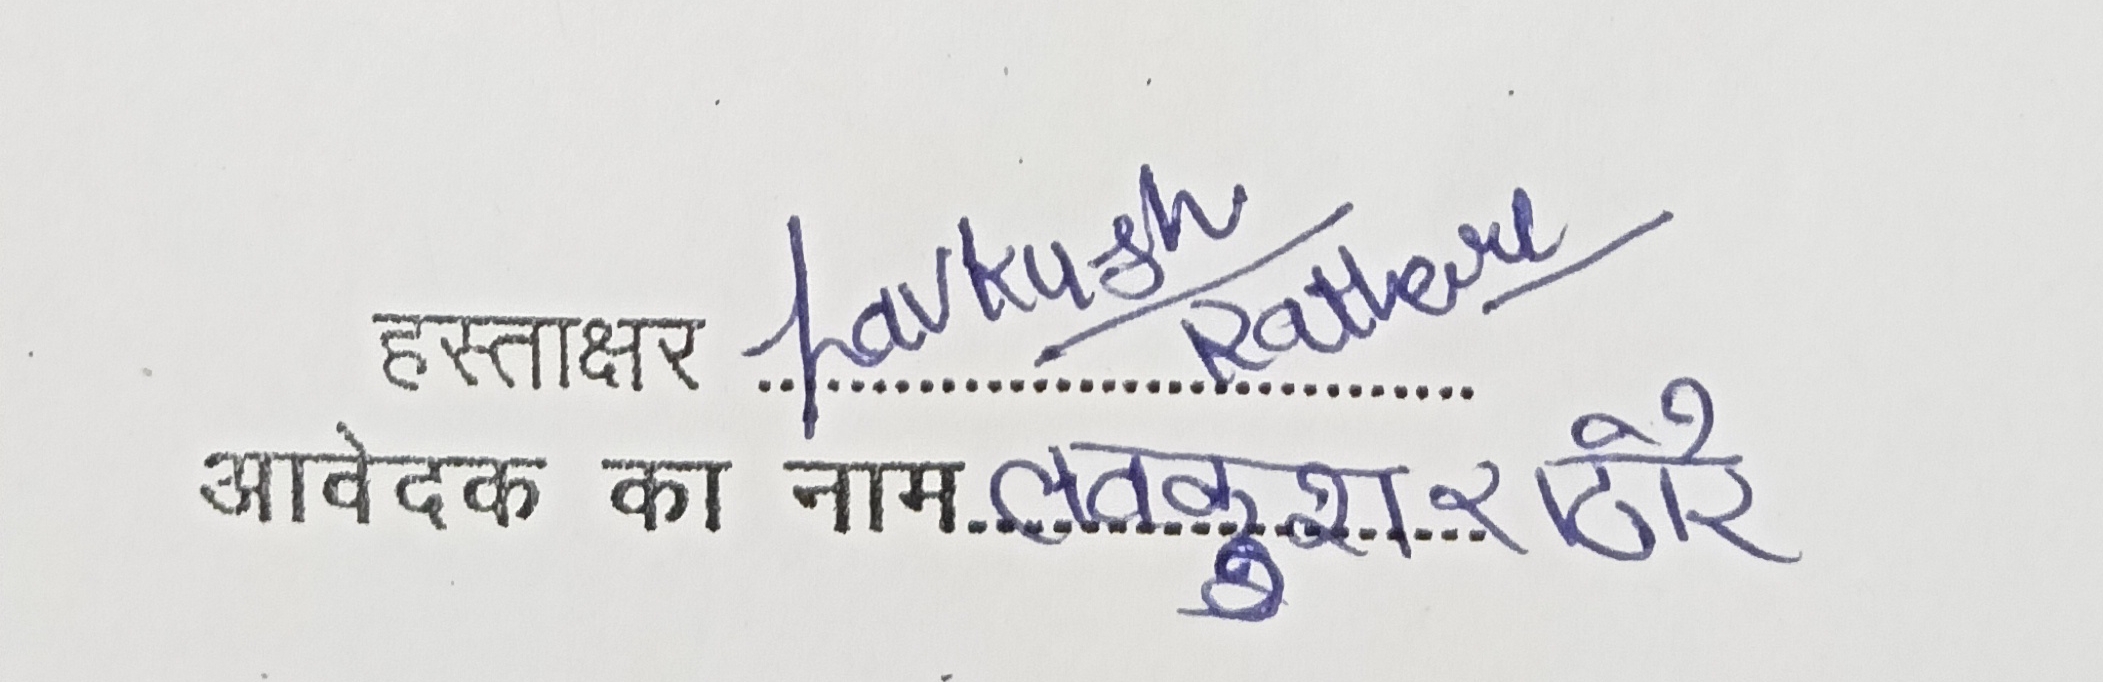 हस्ताक्षर Lavkush Rathore
आवेदक का नाम लवकुश राठौर